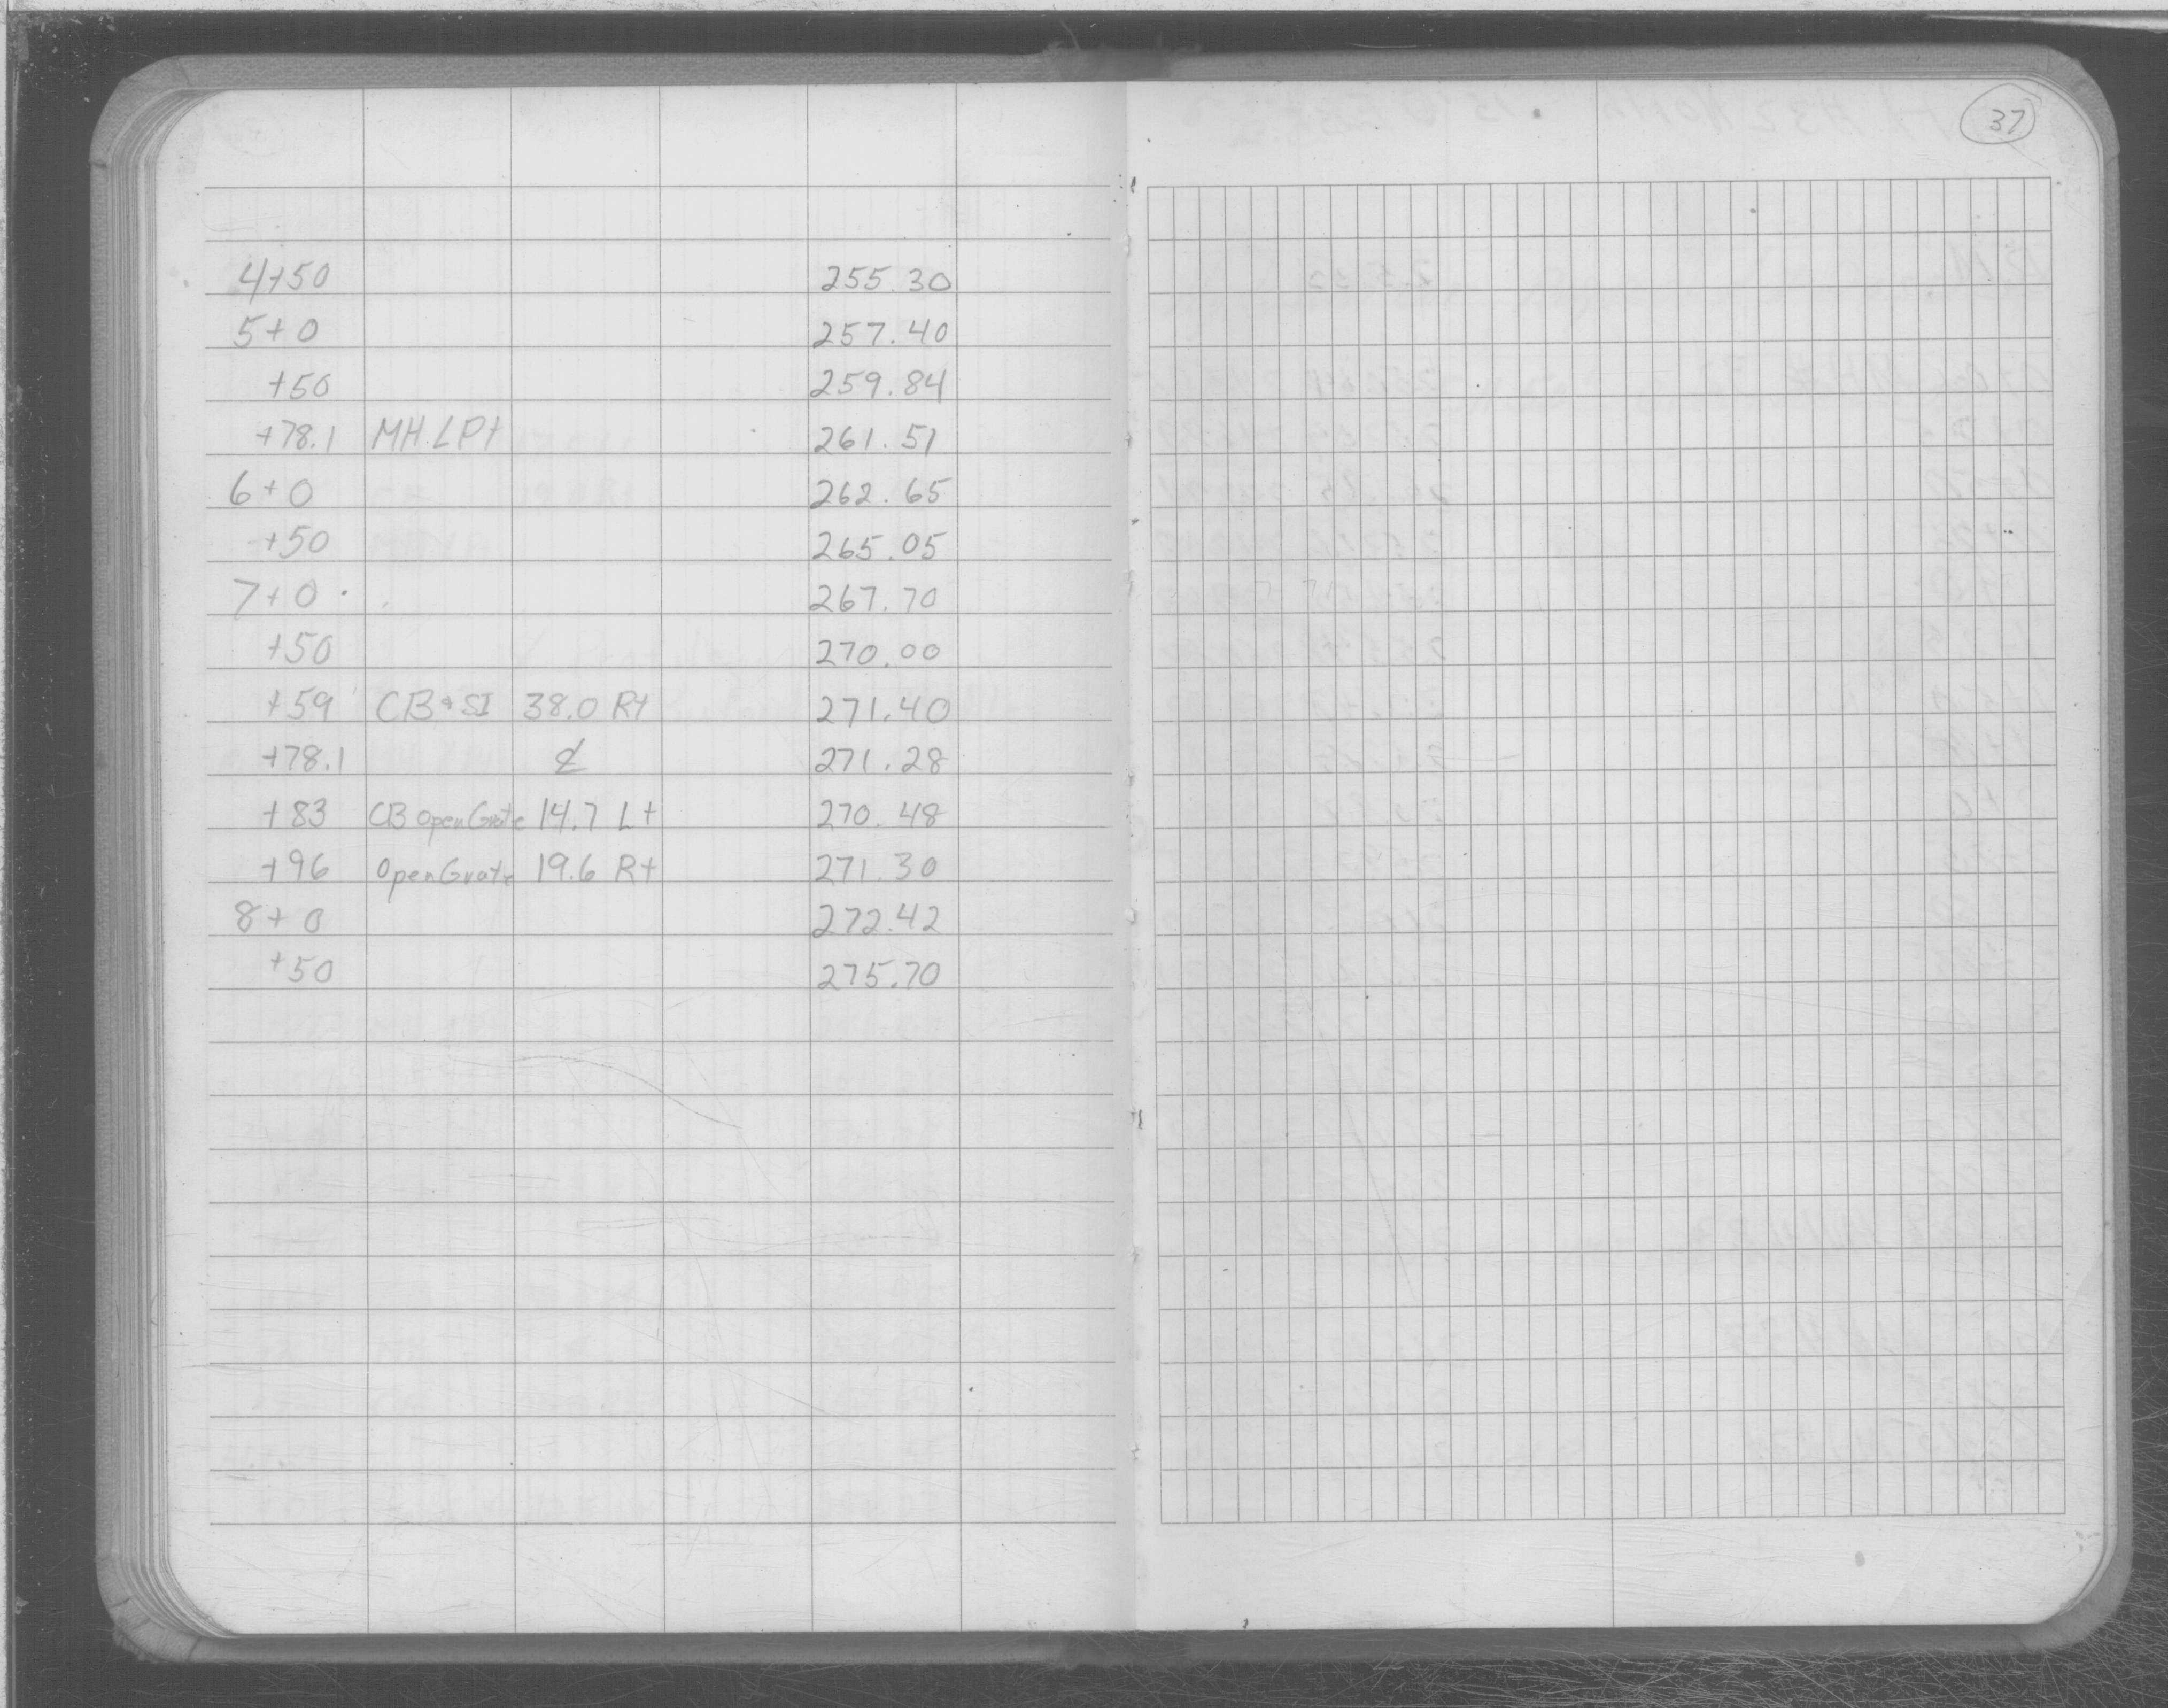 37
4+50 255.30
5+0 257.40
+50 259.84
+78.1 MH. LPt 261.51
6+0 262.65
+50 265.05
7+0 267.70
+50 270.00
+59 CB+SI 38.0 Rt 271.40
+78.1 ⅊ 271.28
+83 CB Open Grate 14.7 Lt 270.48
+96 Open Grate 19.6 Rt 271.30
8+0 272.42
+50 275.70